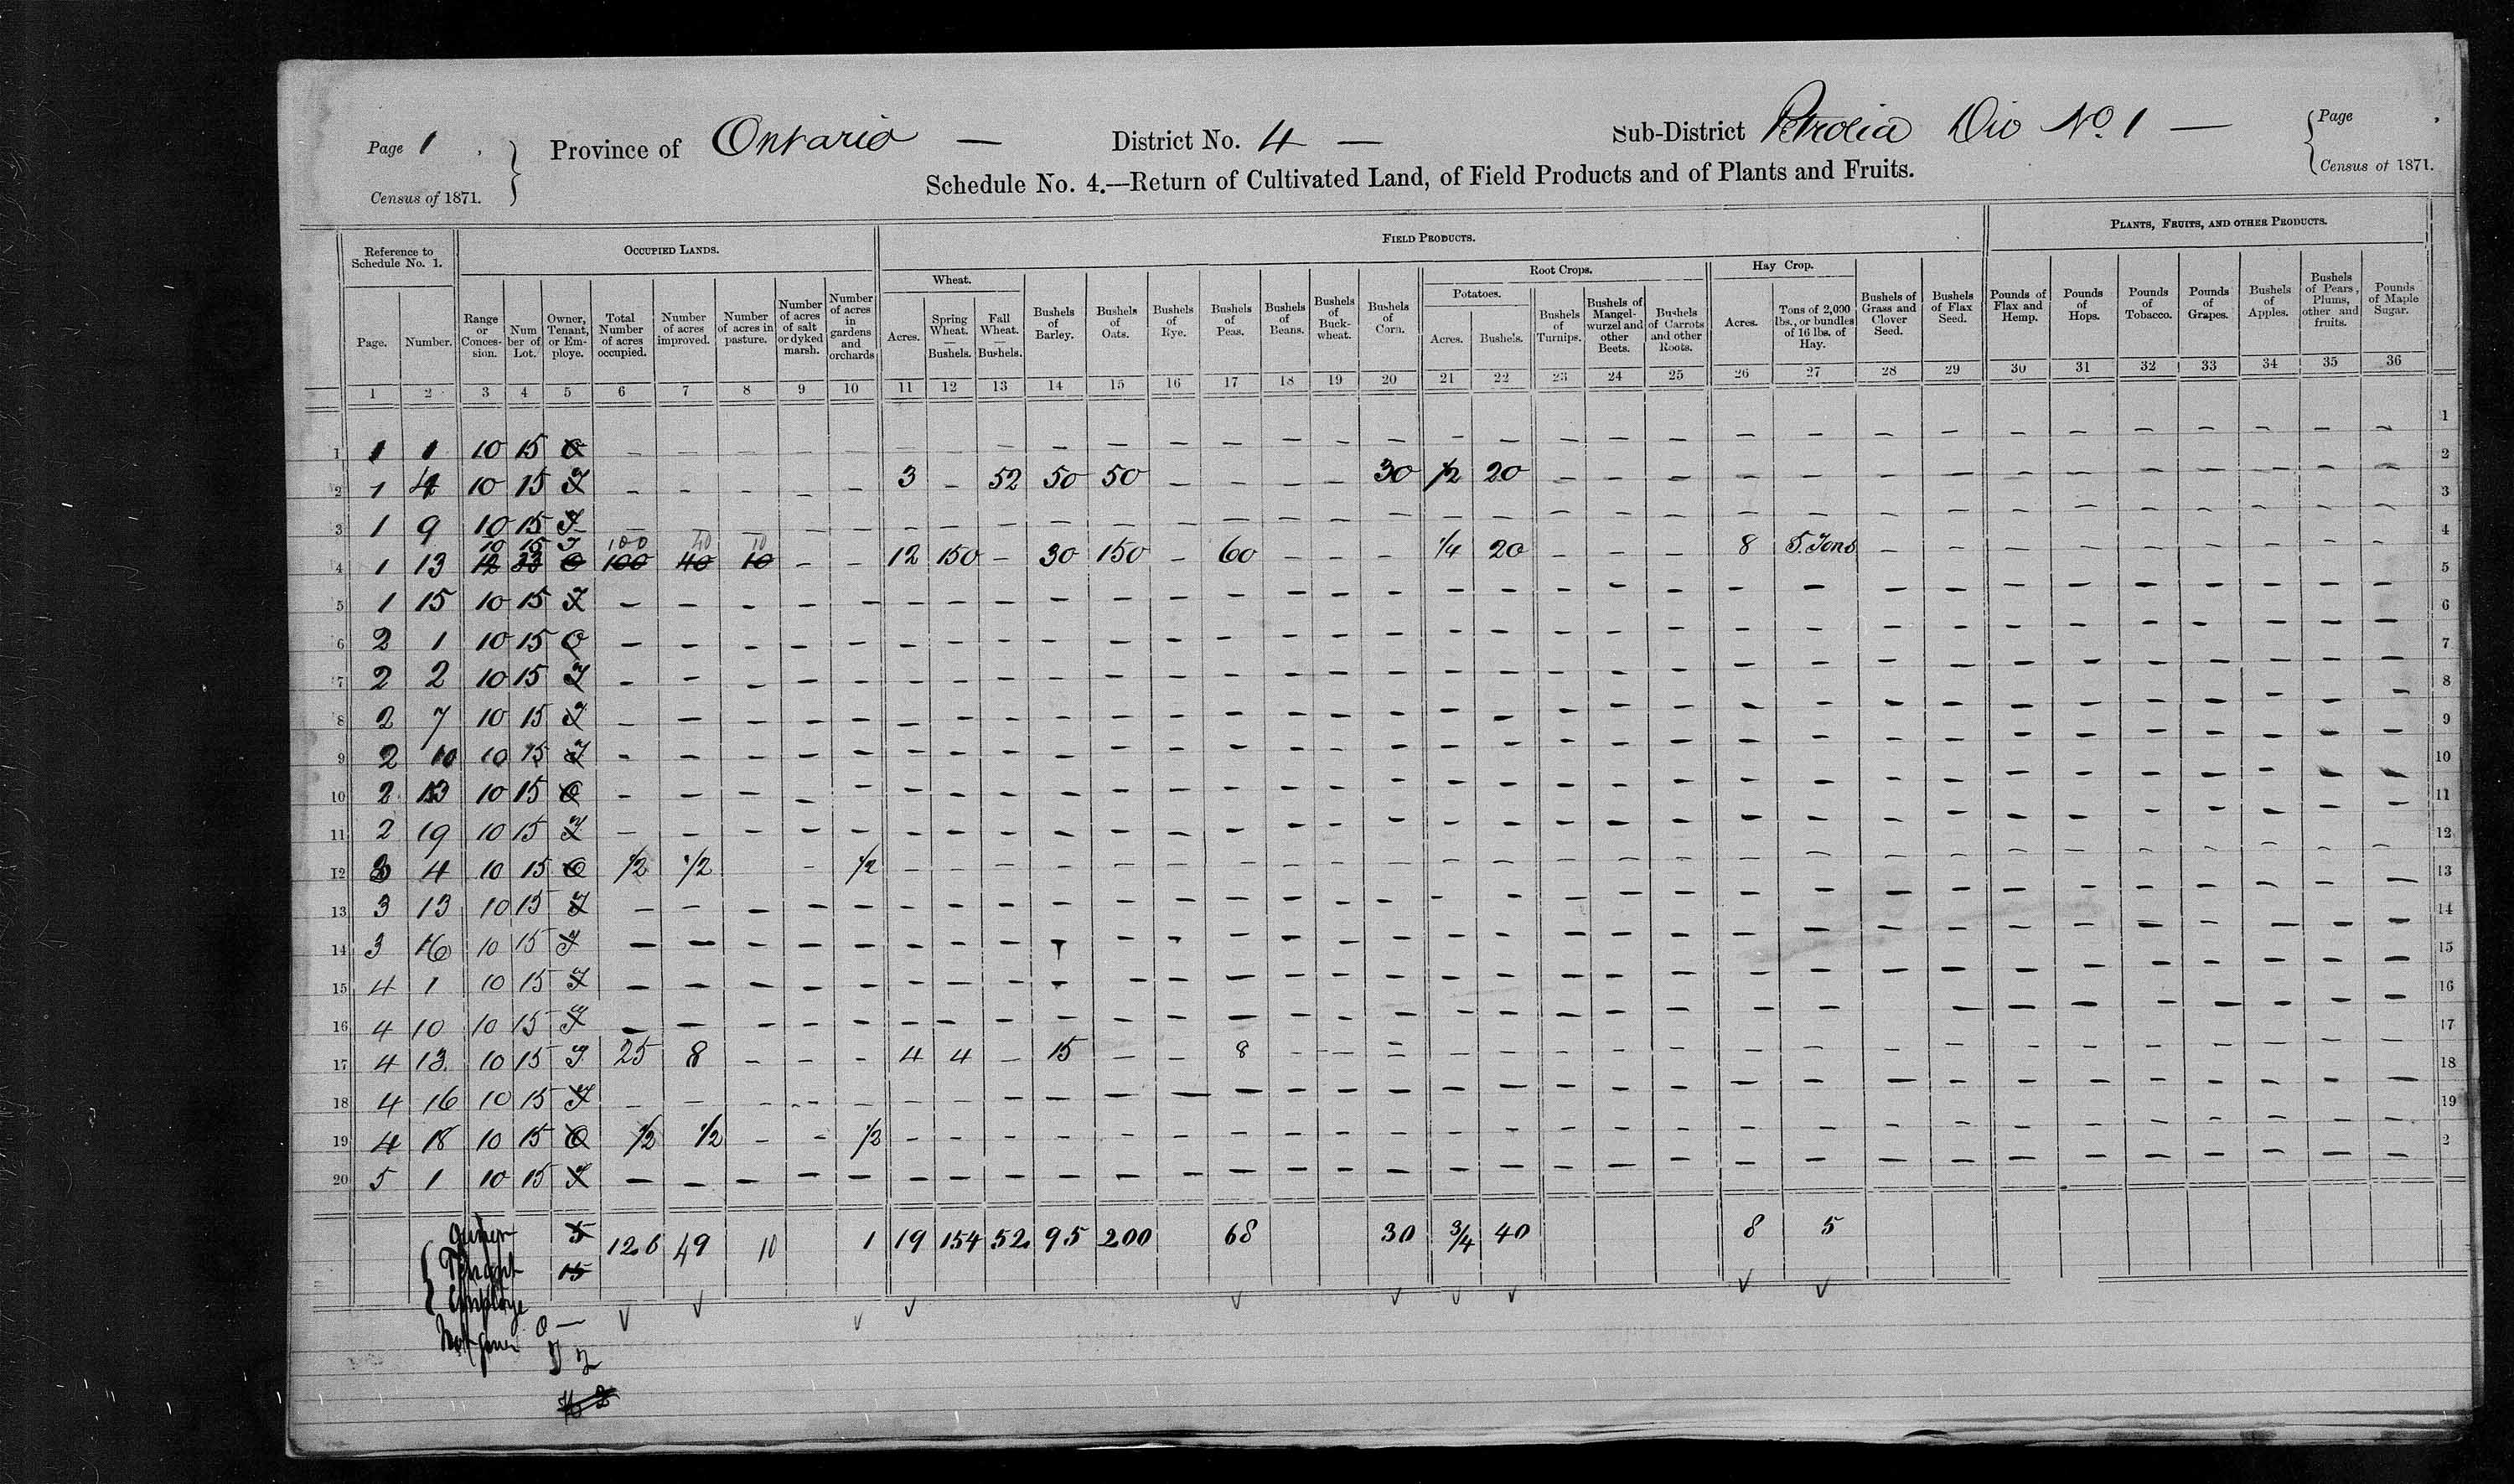 Page 1 . Province of Ontario — District No. 4 — Sub-District Petrolia Div No. 1 — Page .
Census of 1871. Schedule No. 4.—Return of Cultivated Land, of Field Products and of Plants and Fruits. Census of 1871.
Reference to Schedule No. 1. OCCUPIED LANDS. FIELD PRODUCTS. PLANTS, FRUITS, AND OTHER PRODUCTS.
Wheat. Root Crops. Hay Crop.
Potatoes.
Page. Number. Range or Concession. Number of Lot. Owner, Tenant, or Employe. Total Number of acres occupied. Number of acres improved. Number of acres in pasture. Number of acres of salt or dyked marsh. Number of acres in gardens and orchards Acres. Spring Wheat.— Bushels. Fall Wheat.— Bushels. Bushels of Barley. Bushels of Oats. Bushels of Rye. Bushels of Peas. Bushels of Beans. Bushels of Buck-wheat. Bushels of Corn. Acres. Bushels. Bushels of Turnips. Bushels of Mangel-wurzel and other Beets. Bushels of Carrots and other Roots. Acres. Tons of 2,000 lbs., or bundles of 16 lbs. of Hay. Bushels of Grass and Clover Seed. Bushels of Flax Seed. Pounds of Flax and Hemp. Pounds of Hops. Pounds of Tobacco. Pounds of Grapes. Bushels of Apples. Bushels of Pears, Plums, other and fruits. Pounds of Maple Sugar.
1 2 3 4 5 6 7 8 9 10 11 12 13 14 15 16 17 18 19 20 21 22 23 24 25 26 27 28 29 30 31 32 33 34 35 36
1 1 1 10 15 O 1
2 1 4 10 15 T 3 52 50 50 30 1/2 20 2
3 1 9 10 15 T 3
10 15 T 100 40 10
4 1 13 12 33 O 100 40 10 12 150 30 150 60 1/4 20 8 5 Tons 4
5 1 15 10 15 T 5
6 2 1 10 15 O 6
7 2 2 10 15 T 7
8 2 7 10 15 T 8
9 2 10 10 15 T 9
10 2 13 10 15 O 10
11 2 19 10 15 T 11
12 3 4 10 15 O 1/2 1/2 1/2 12
13 3 13 10 15 T 13
14 3 16 10 15 T 14
15 4 1 10 15 T 15
16 4 10 10 15 T 16
17 4 13 10 15 T 25 8 4 4 15 8 17
18 4 16 10 15 T 18
19 4 18 10 15 O 1/2 1/2 1/2 19
20 5 1 10 15 T 2
Owner 5 126 49 10 1 19 154 52 95 200 68 30 3/4 40 8 5
Tenant 15
Employe
O —
T 2